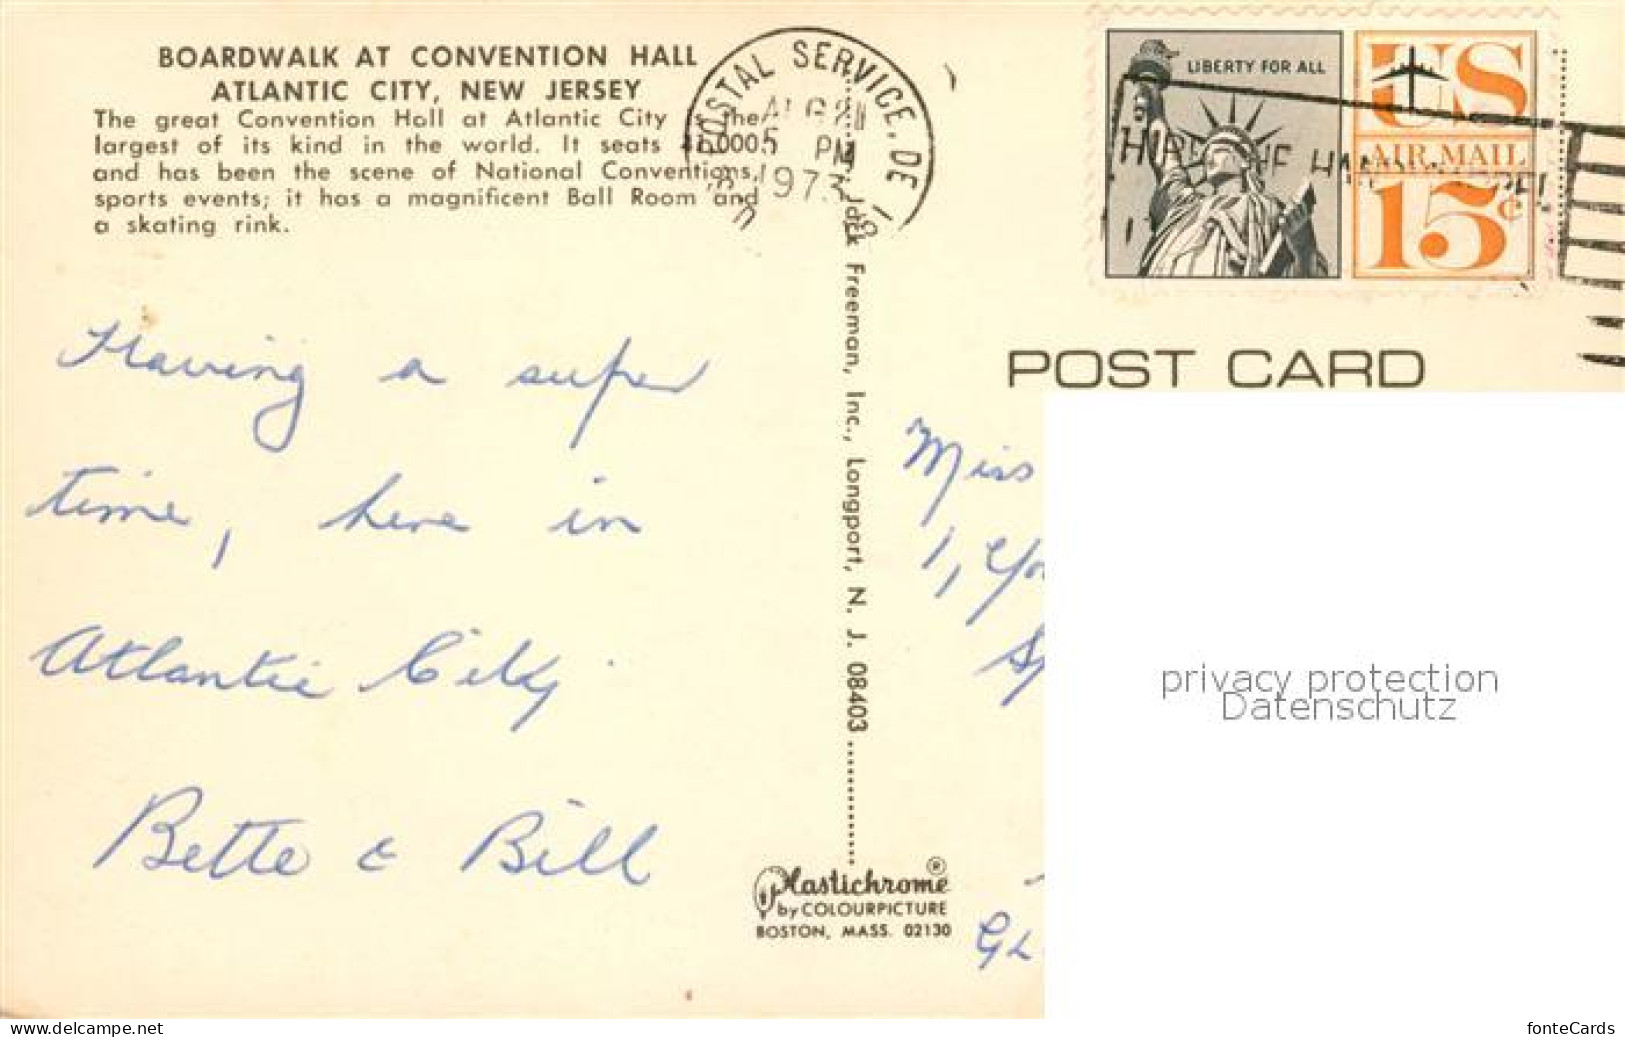 BOARDWALK AT CONVENTION HALL
ATLANTIC CITY, NEW JERSEY
The great Convention Hall at Atlantic City is the
largest of its kind in the world. It seats
and has been the scene of National Conventions,
sports events; it has a magnificent Ball Room and
a skating rink.
Having a super
time, here in
Atlantic City.
Bette & Bill
U.S. POSTAL SERVICE, DE
AUG 21
PM
197
Jack Freeman, Inc., Longport, N. J. 08403
Plastichrome®
by COLOURPICTURE
BOSTON, MASS. 02130
LIBERTY FOR ALL
US
AIR MAIL
15¢
POST CARD
Miss
1,
privacy protection
Datenschutz
www.delcampe.net
fonteCards